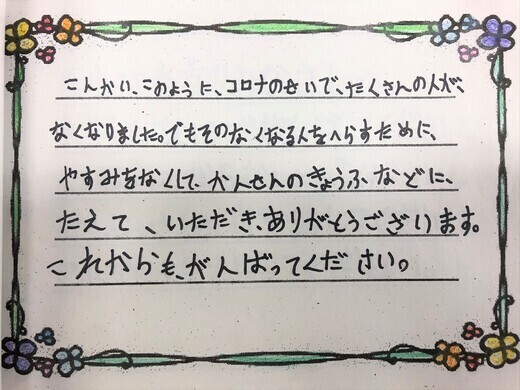 こんかい、このように、コロナのせいで、たくさんの人が、
なくなりました。でもそのなくなる人をへらすために、
やすみをなくして、かんせんのきょうふなどに、
たえて、いただき、ありがとうございます。
これからも、がんばってください。